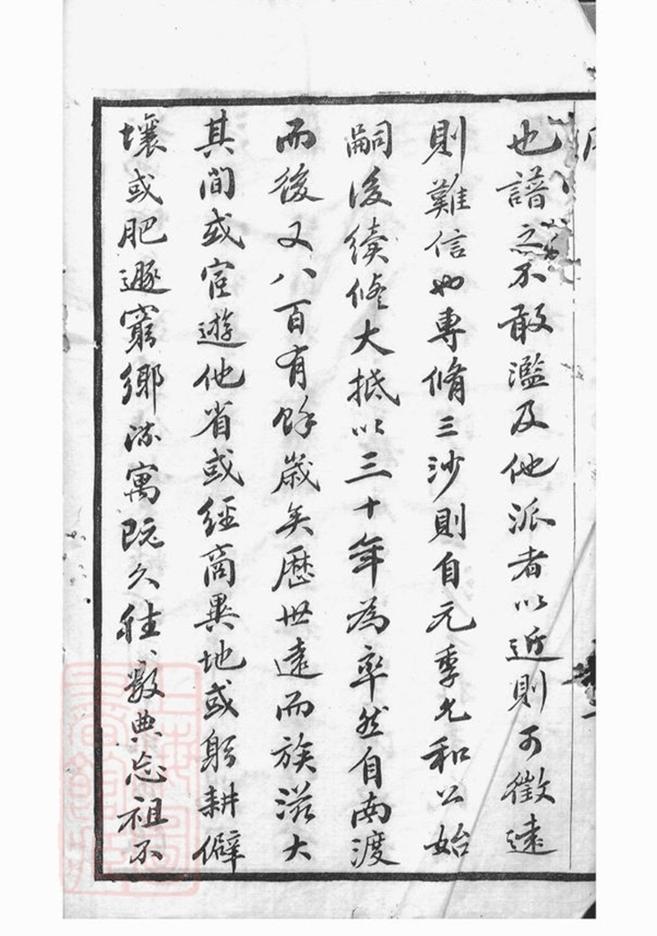 也譜之不敢濫及他派者以近則可徵遠
則難信也專脩三沙則自元季允和公始
嗣後續修大抵以三十年為率然自南渡
而後又八百有餘歲矣歷世遠而族滋大
其間或宦遊他省或經商異地或躬耕僻
壤或肥遯窮鄉流寓既久往々數典忘祖不